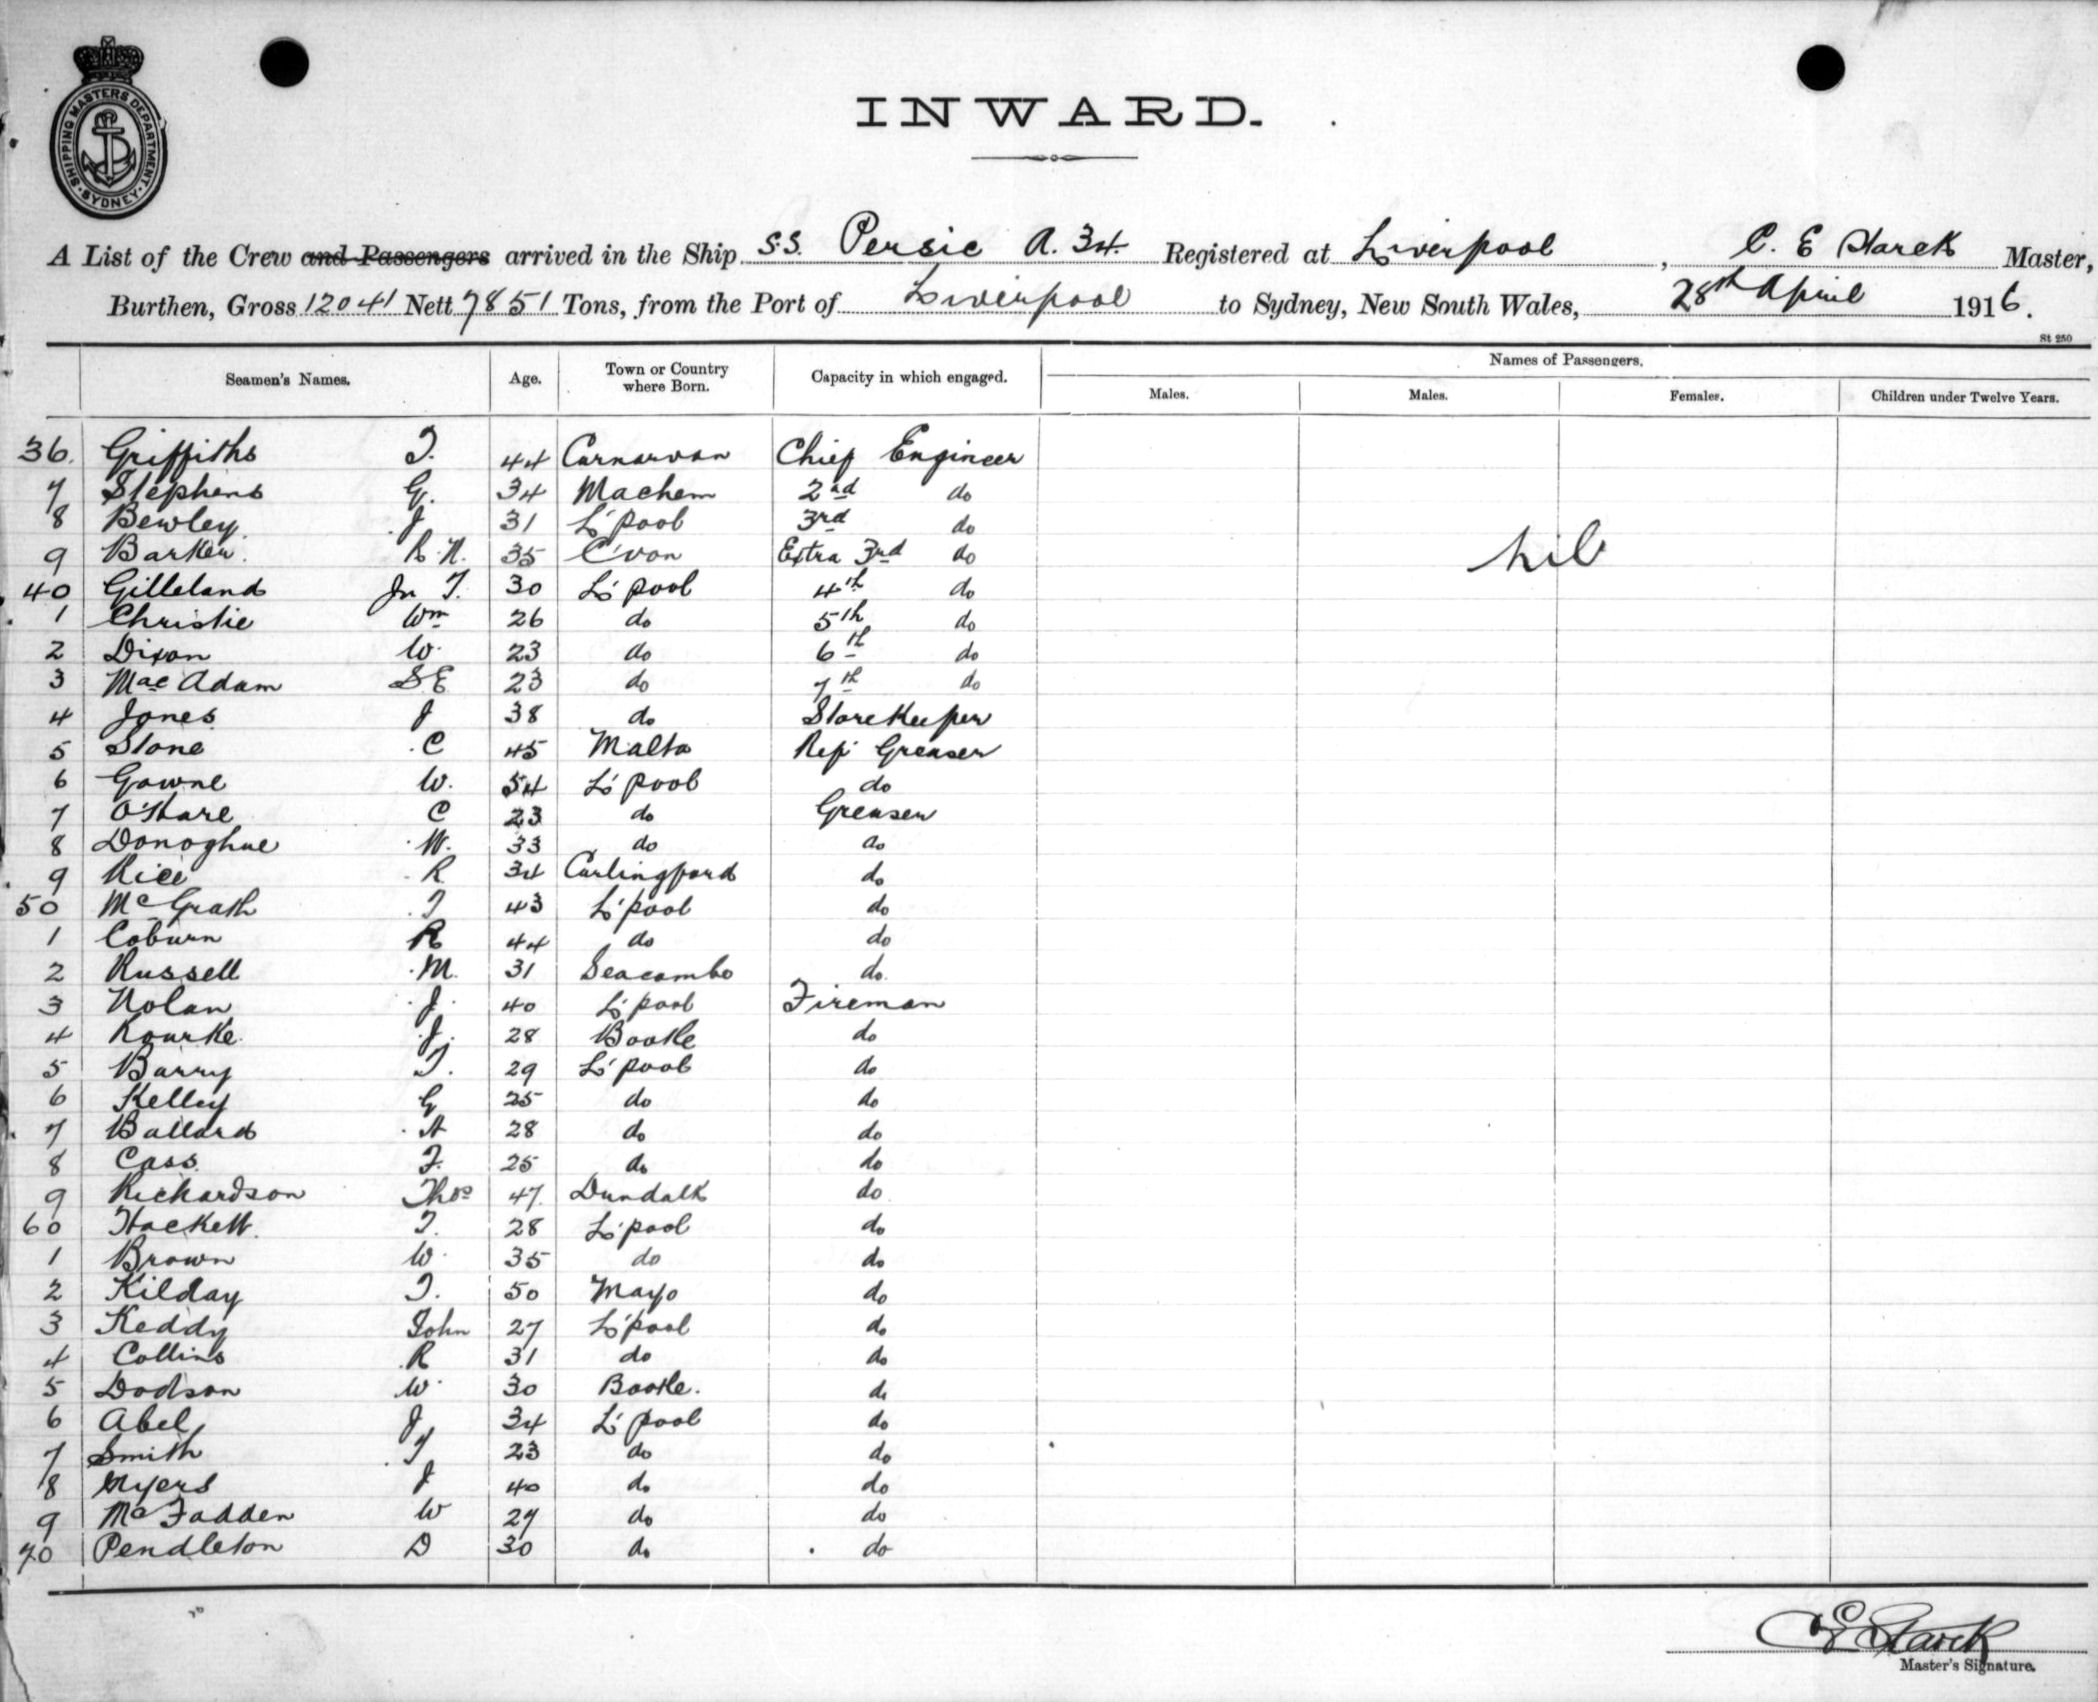 SHIPPING MASTERS DEPARTMENT. SYDNEY.
INWARD.
A List of the Crew and Passengers arrived in the Ship S.S. Persic A. 34. Registered at Liverpool, C. E Starck Master,
Burthen, Gross 12041 Nett 7851 Tons, from the Port of Liverpool to Sydney, New South Wales, 28th April 1916.
St 250
Seamen's Names. Age. Town or Country where Born. Capacity in which engaged. Names of Passengers.
Males. Males. Females. Children under Twelve Years.
36. Griffiths T. 44 Carnarvon Chief Engineer
7 Stephens G. 34 Machem 2nd do
8 Bewley J 31 L'pool 3rd do
9 Barker R. N. 35 C'von Extra 3rd do nil
40 Gilleland Jn T. 30 L'pool 4th do
1 Christie Wm 26 do 5th do
2 Dixon W. 23 do 6th do
3 Mac Adam S E 23 do 7th do
4 Jones J 38 do Storekeeper
5 Stone C 45 Malta Ref. Greaser
6 Gowne W. 54 L'pool do
7 O'Hare C 23 do Greaser
8 Donoghue W. 33 do do
9 Rice R 34 Carlingford do
50 McGrath T 43 L'pool do
1 Coburn R 44 do do
2 Russell M. 31 Seacombe do.
3 Nolan J. 40 L'pool Fireman
4 Rourke J. 28 Bootle do
5 Barry T. 29 L'pool do
6 Kelley G 25 do do
7 Ballard A 28 do do
8 Cass T. 25 do do
9 Richardson Thos 47. Dundalk do
60 Hackett T. 28 L'pool do
1 Brown W. 35 do do
2 Kilday T. 50 Mayo do
3 Keddy John 27 L'pool do
4 Collins R 31 do do
5 Dodson W. 30 Bootle. do
6 Abel J 34 L'pool do
7 Smith T 23 do do
8 Myers J 40 do do
9 McFadden W 27 do do
70 Pendleton D 30 do do
C E Starck
Master's Signature.